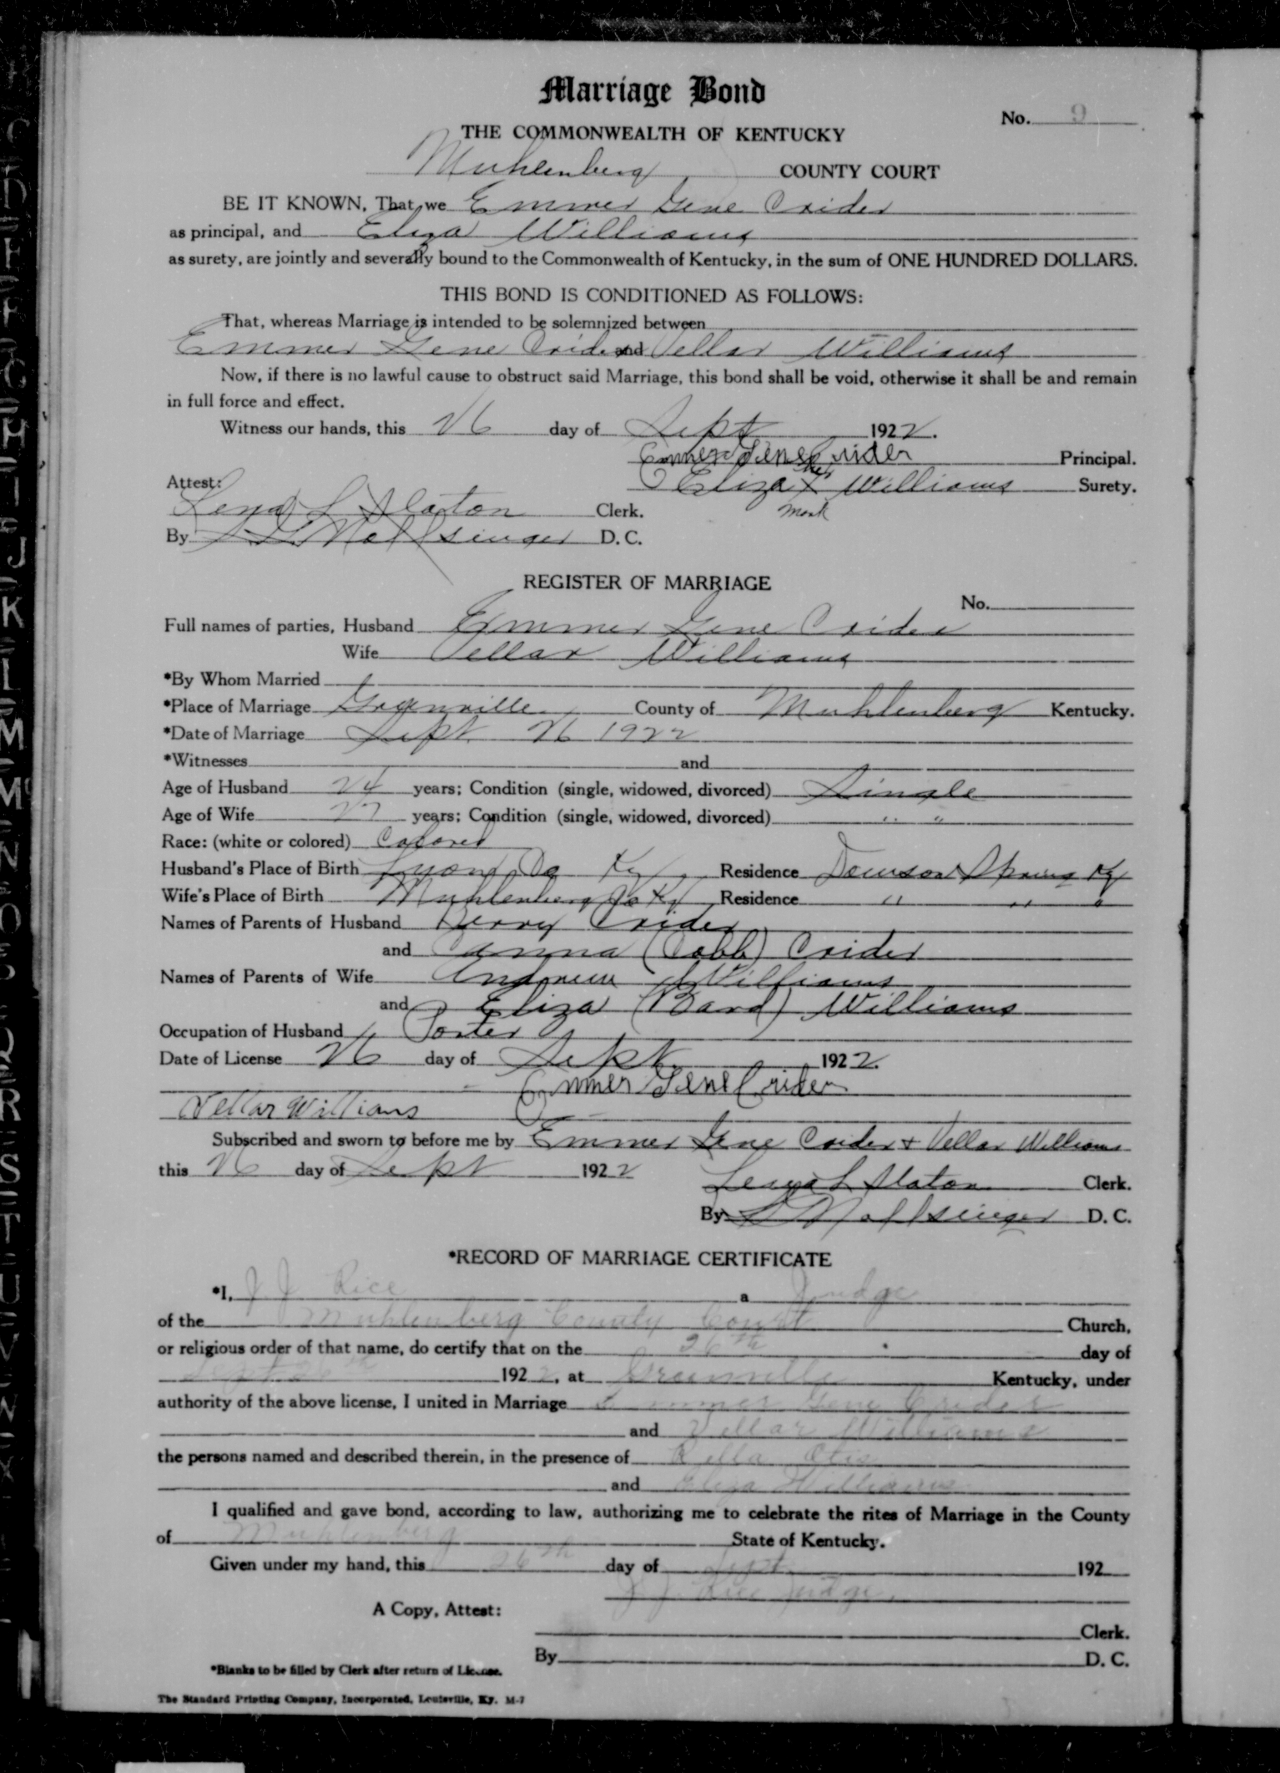 Marriage Bond
No. 9
THE COMMONWEALTH OF KENTUCKY
Muhlenberg COUNTY COURT
BE IT KNOWN, That we Emmer Gene Crider
as principal, and Eliza Williams
as surety, are jointly and severally bound to the Commonwealth of Kentucky, in the sum of ONE HUNDRED DOLLARS.
THIS BOND IS CONDITIONED AS FOLLOWS:
That, whereas Marriage is intended to be solemnized between
Emmer Gene Crider and Vellar Williams
Now, if there is no lawful cause to obstruct said Marriage, this bond shall be void, otherwise it shall be and remain
in full force and effect.
Witness our hands, this 26 day of Sept 1922.
Emmer Gene Crider Principal.
Eliza her X mark Williams Surety.
Attest:
L Slaton Clerk.
By D. C.
REGISTER OF MARRIAGE
No.
Full names of parties, Husband Emmer Gene Crider
Wife Vellar Williams
*By Whom Married
*Place of Marriage Greenville County of Muhlenberg Kentucky.
*Date of Marriage Sept 26 1922
*Witnesses and
Age of Husband 24 years; Condition (single, widowed, divorced) Single
Age of Wife 27 years; Condition (single, widowed, divorced) " "
Race: (white or colored) Colored
Husband's Place of Birth Lyon Co Ky Residence Dawson Springs Ky
Wife's Place of Birth Muhlenberg Co Ky Residence " " "
Names of Parents of Husband Berry Crider
and Canna (Cobb) Crider
Names of Parents of Wife Andrew Williams
and Eliza (Bard) Williams
Occupation of Husband Porter
Date of License 26 day of Sept 1922.
Emmer Gene Crider
Vellar Williams
Subscribed and sworn to before me by Emmer Gene Crider + Vellar Williams
this 26 day of Sept 1922
L Slaton Clerk.
By D. C.
*RECORD OF MARRIAGE CERTIFICATE
*I, J. J. Rice a Judge
of the Muhlenberg County Court Church,
or religious order of that name, do certify that on the 26th day of
Sept 26th 1922, at Greenville Kentucky, under
authority of the above license, I united in Marriage Emmer Gene Crider
and Vellar Williams
the persons named and described therein, in the presence of Rella Otis
and Eliza Williams
I qualified and gave bond, according to law, authorizing me to celebrate the rites of Marriage in the County
of Muhlenberg State of Kentucky.
Given under my hand, this 26th day of Sept. 192
J. J. Rice Judge.
A Copy, Attest:
Clerk.
By D. C.
*Blanks to be filled by Clerk after return of License.
The Standard Printing Company, Incorporated, Louisville, Ky. M-7